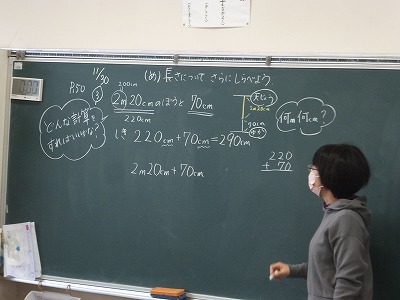 11/30
P.50
(め)長さについて さらにしらべよう。
200cm
2m20cmのぼうと 70cm
220cm
2m20cm
70cm
何m何cm?
どんな計算を
すればいいかな?
しき 220cm+70cm=290cm
2m20cm+70cm
220
+ 70